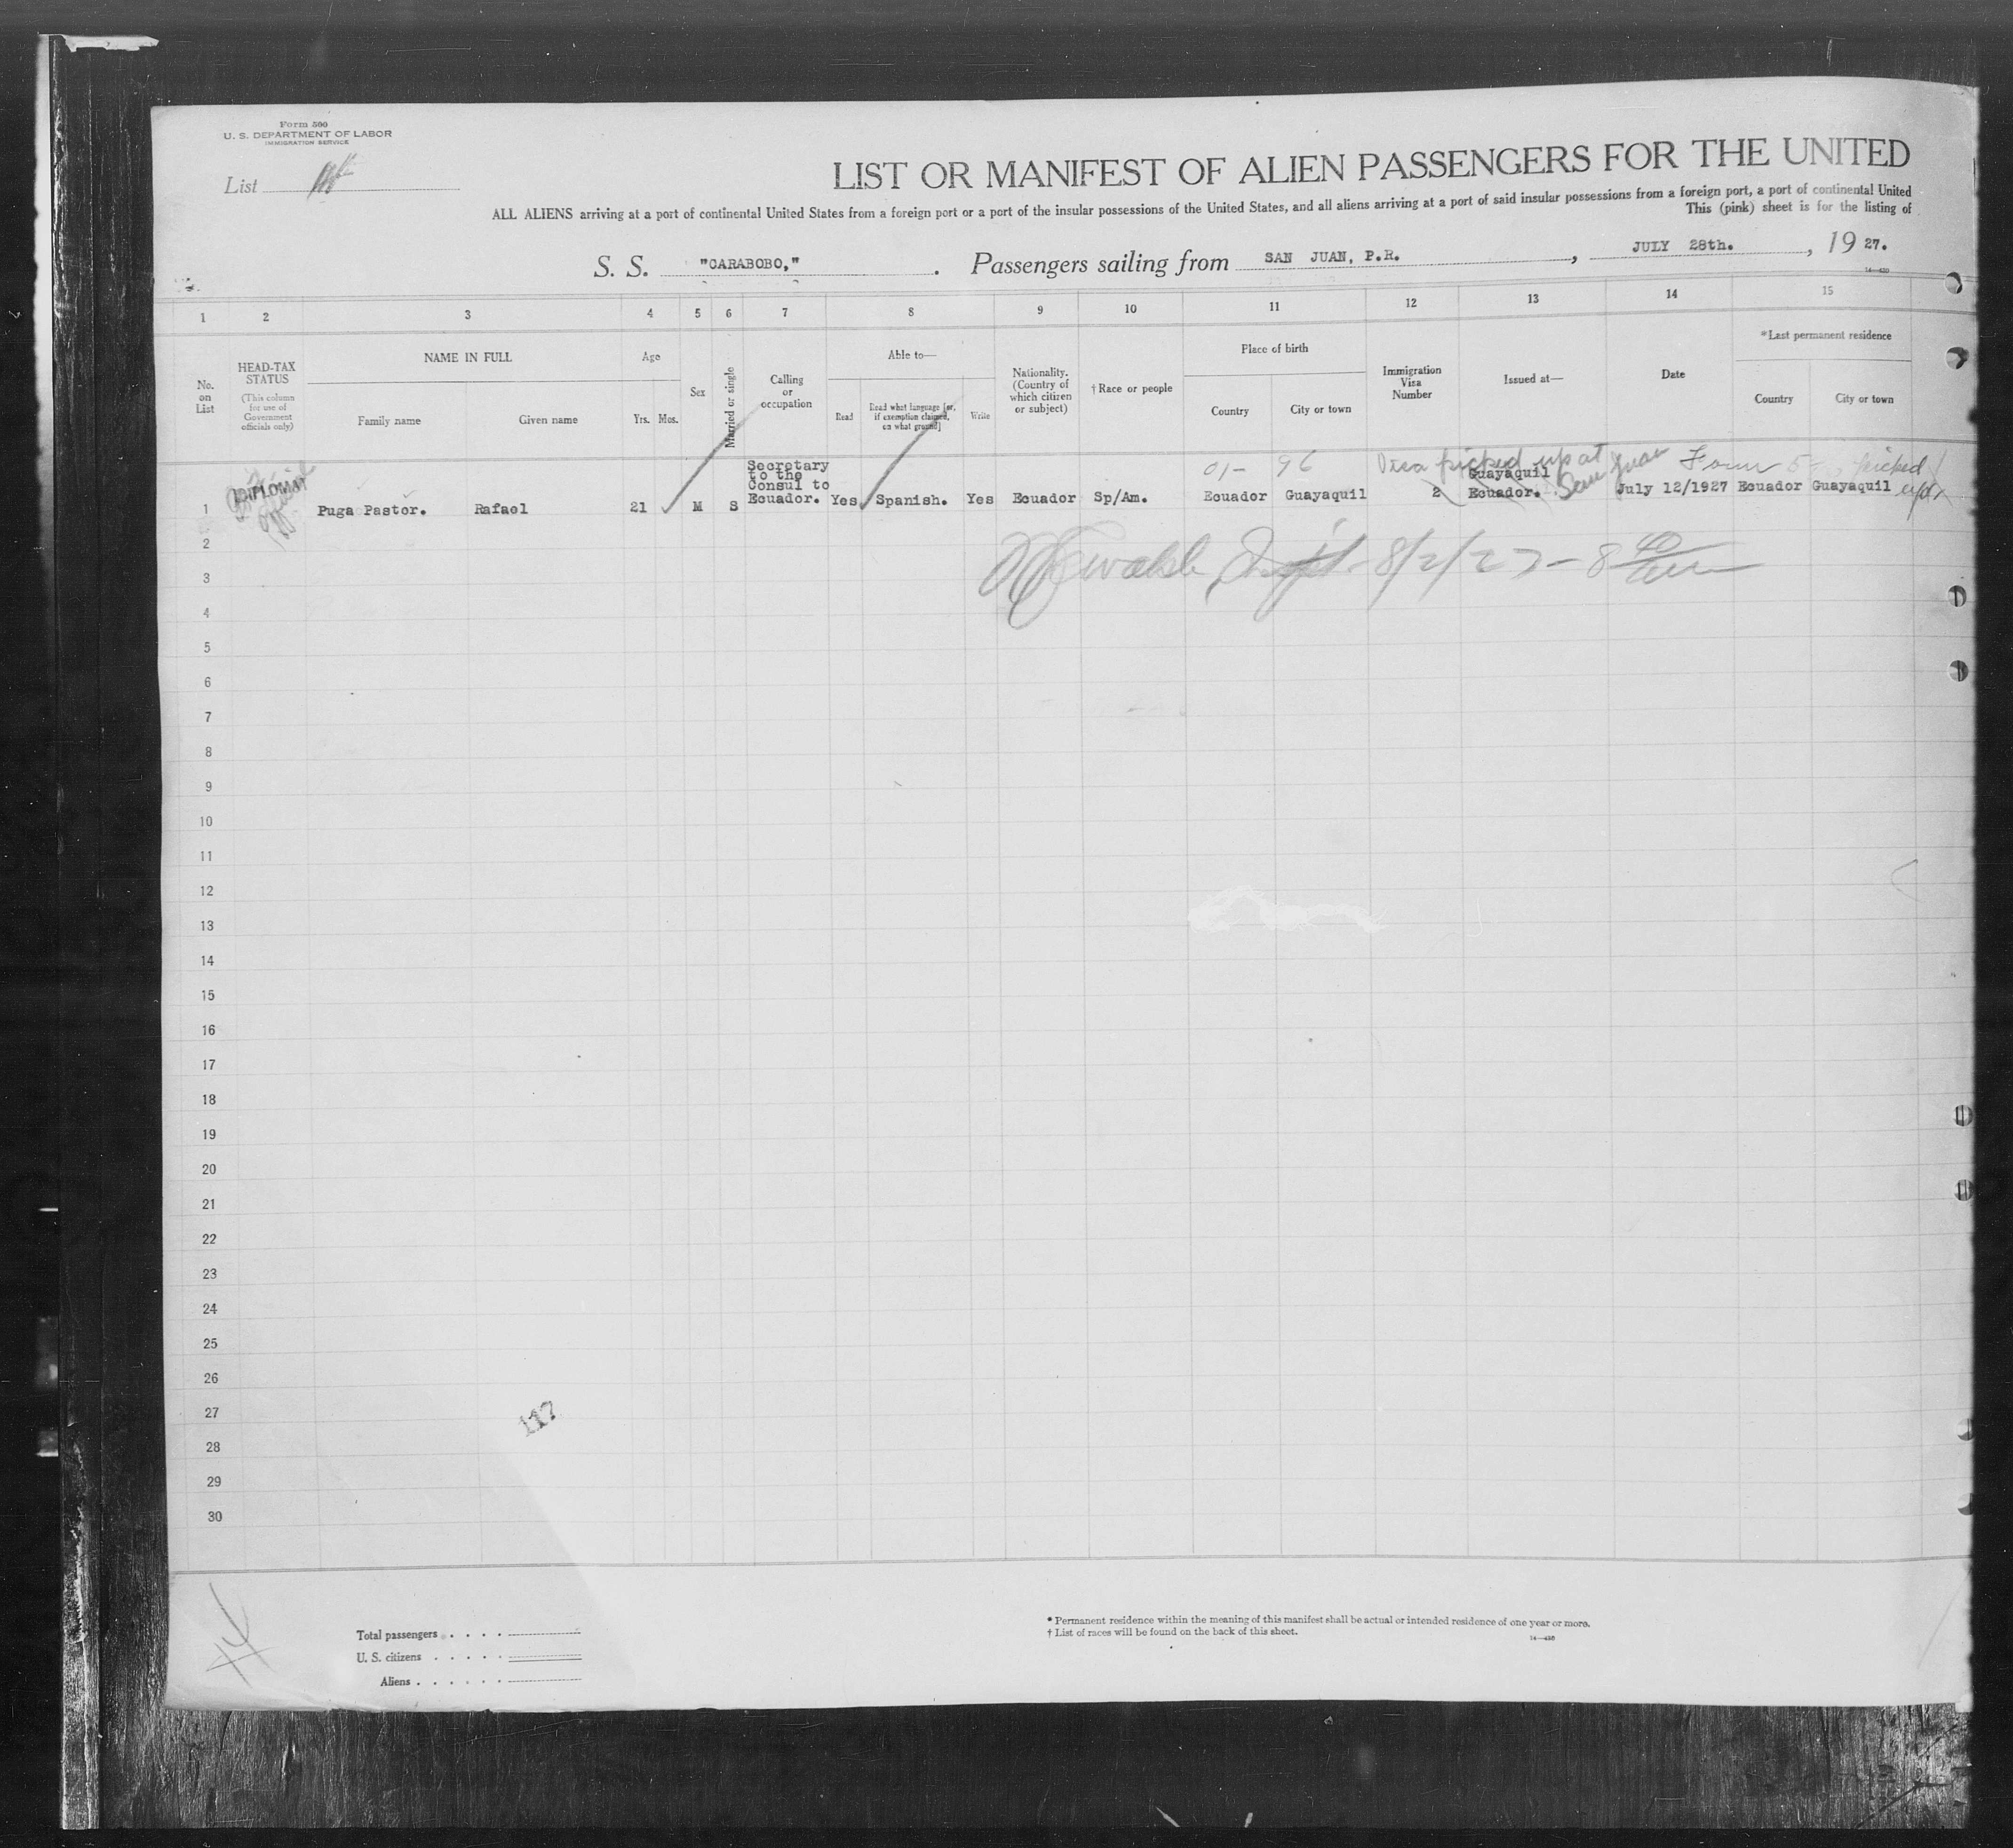 Form 500
U. S. DEPARTMENT OF LABOR
IMMIGRATION SERVICE
List
LIST OR MANIFEST OF ALIEN PASSENGERS FOR THE UNITED
ALL ALIENS arriving at a port of continental United States from a foreign port or a port of the insular possessions of the United States, and all aliens arriving at a port of said insular possessions from a foreign port, a port of continental United
This (pink) sheet is for the listing of
S. S. "CARABOBO," . Passengers sailing from SAN JUAN, P.R. , JULY 28th. , 19 27.
14—430
1 2 3 4 5 6 7 8 9 10 11 12 13 14 15
No. on List
HEAD-TAX STATUS
(This column for use of Government officials only)
NAME IN FULL
Family name Given name
Age
Yrs. Mos.
Sex
Married or single
Calling or occupation
Able to—
Read Read what language [or, if exemption claimed, on what ground] Write
Nationality. (Country of which citizen or subject)
† Race or people
Place of birth
Country City or town
Immigration Visa Number
Issued at—
Date
*Last permanent residence
Country City or town
01- 96 Visa picked up at San Juan Form picked up
DIPLOMAT
1 Puga Pastor. Rafael 21 M S Secretary to the Consul to Ecuador. Yes Spanish. Yes Ecuador Sp/Am. Ecuador Guayaquil 2 Guayaquil Ecuador. July 12/1927 Ecuador Guayaquil
2
8/2/27 - 8
3
4
5
6
7
8
9
10
11
12
13
14
15
16
17
18
19
20
21
22
23
24
25
26
27
117
28
29
30
Total passengers
U. S. citizens
Aliens
* Permanent residence within the meaning of this manifest shall be actual or intended residence of one year or more.
† List of races will be found on the back of this sheet.
14—430